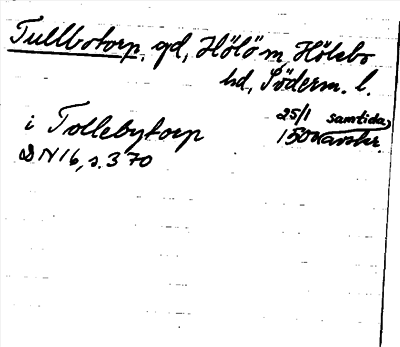 Tullbotorp, gd, Hölö sn, Hölebo
hd, Söderm. l.
25/1 samtida
i Tollebytorp 1500 avskr.
DN 16, s. 370